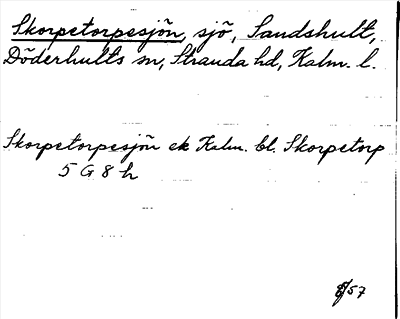 Skorpetorpesjön, sjö, Sandshult,
Döderhults sn, Stranda hd, Kalm. l.
Skorpetorpesjön ek Kalm. bl. Skorpetorp
5 G 8 h
/57